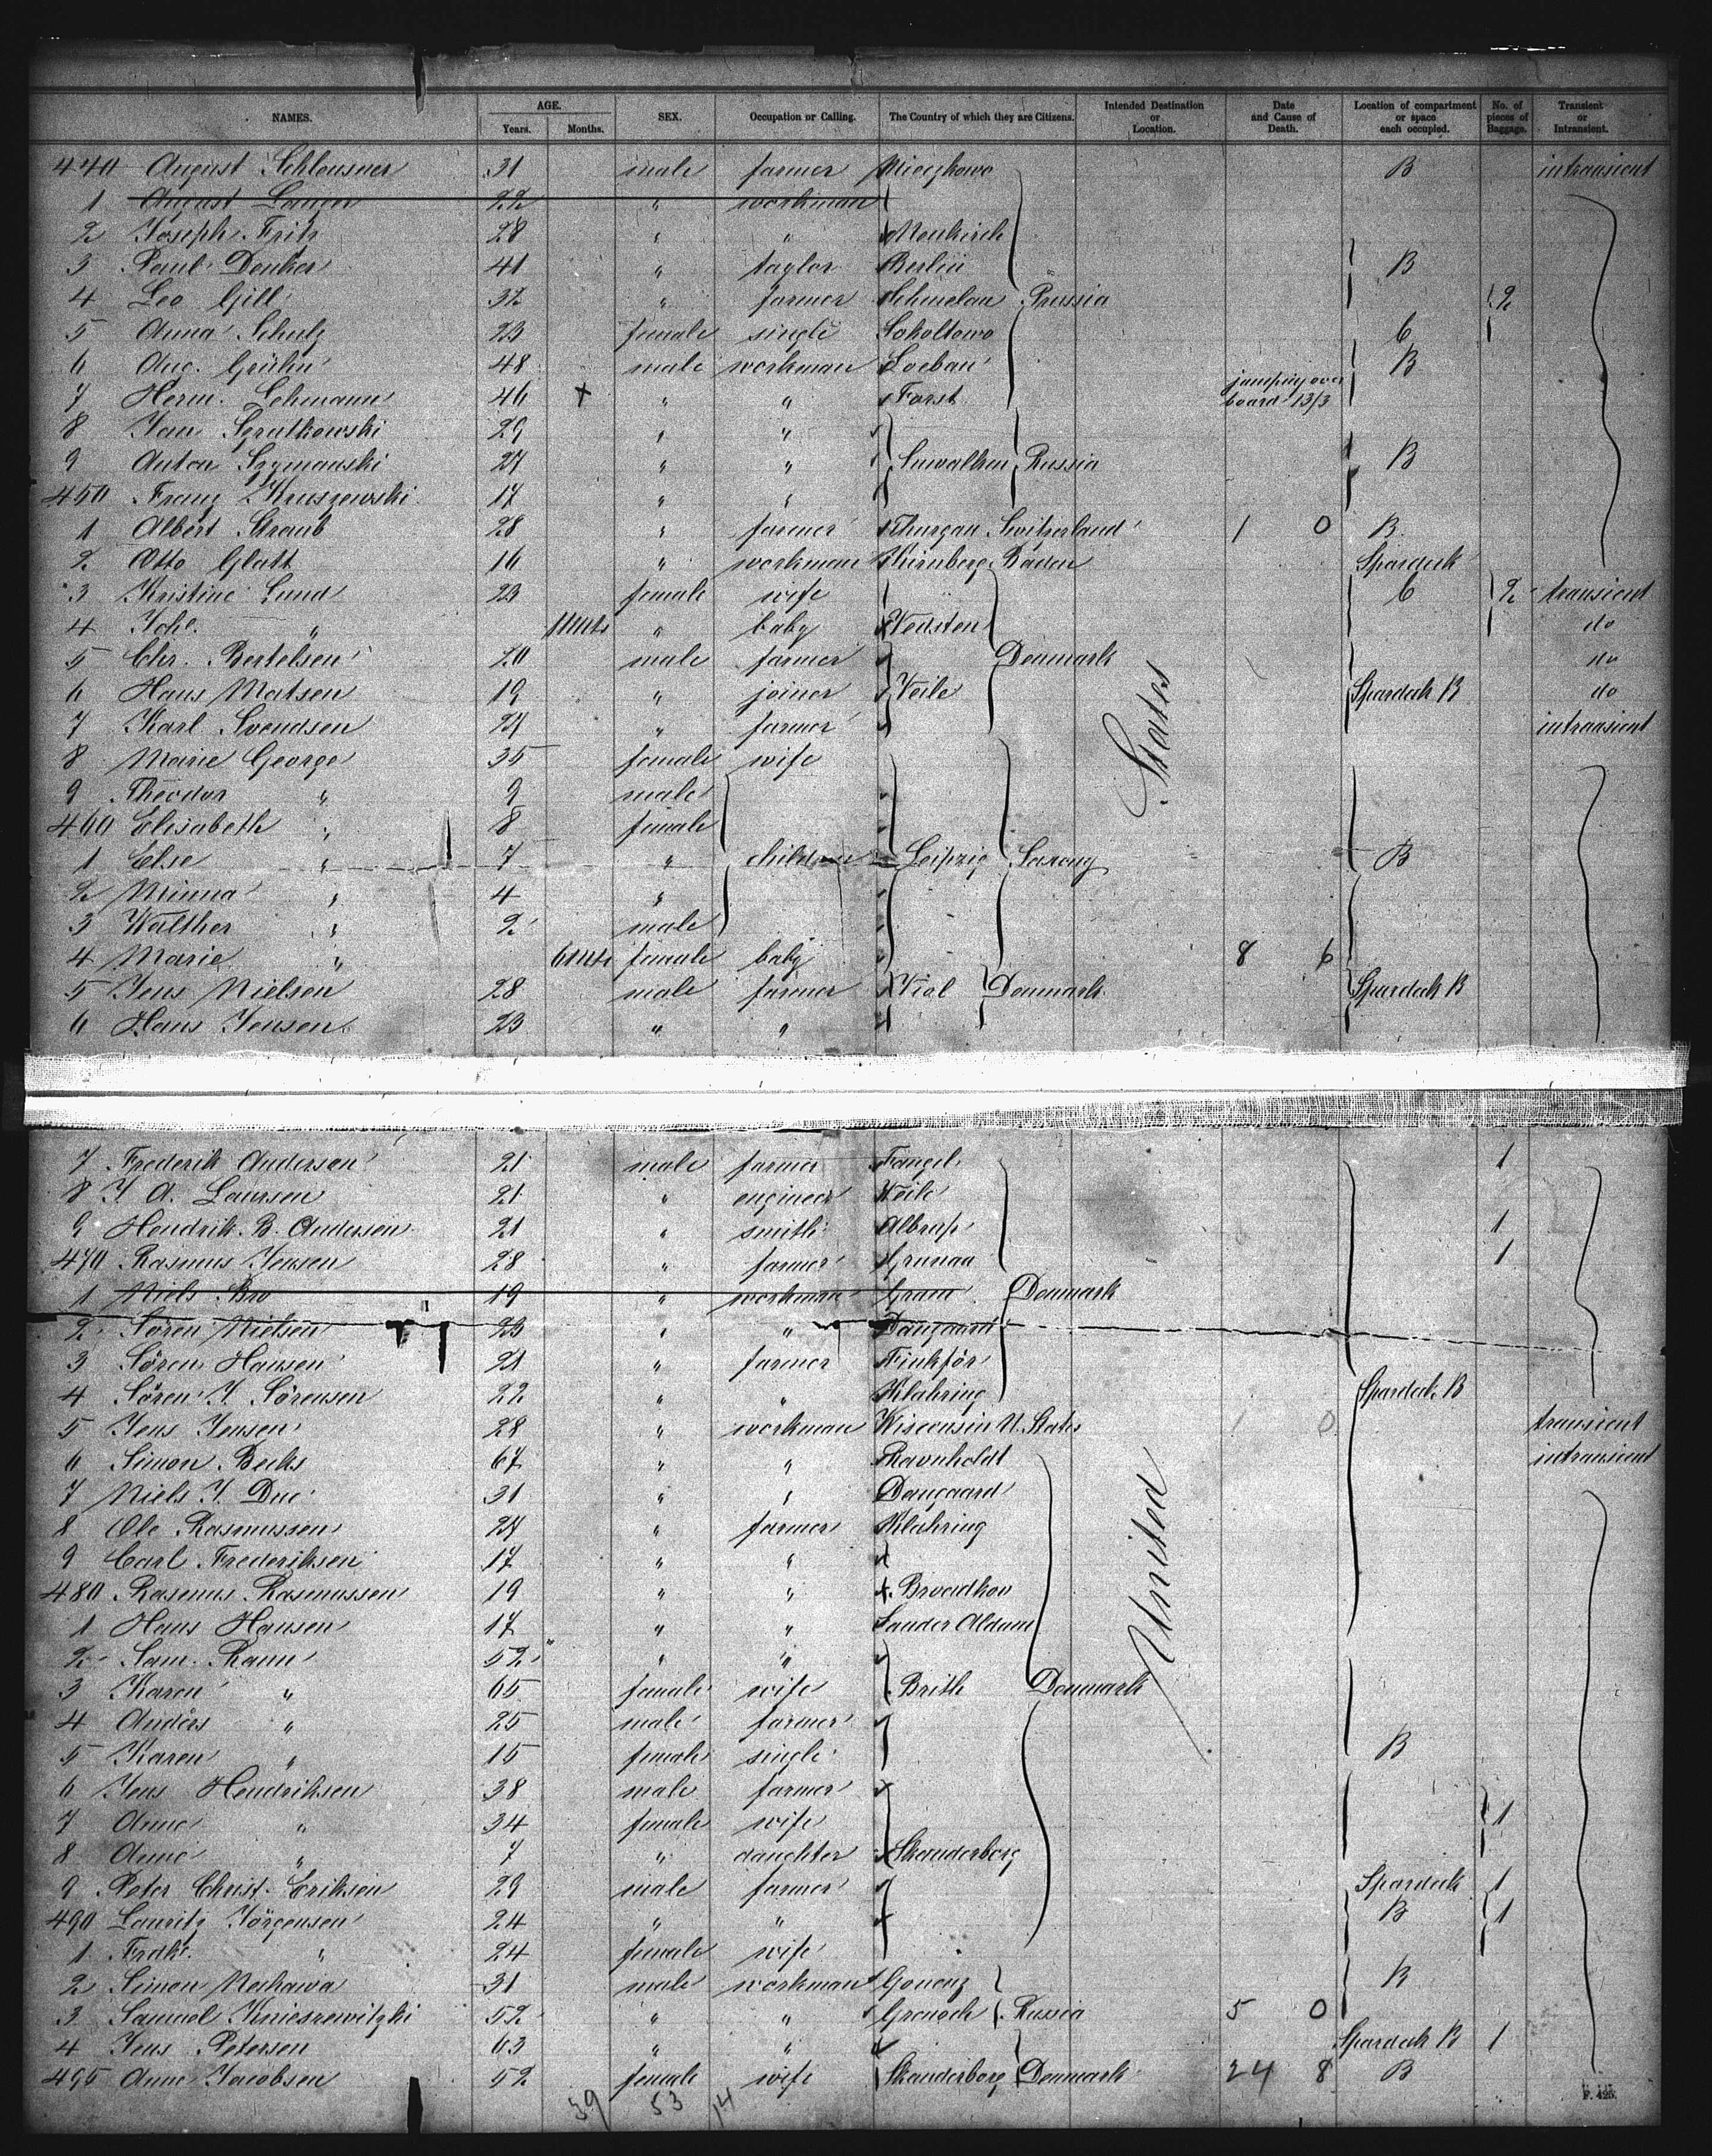 NAMES. AGE. Years. Months. SEX. Occupation or Calling. The Country of which they are Citizens. Intended Destination or Location. Date and Cause of Death. Location of compartment or space each occupied. No. of pieces of Baggage. Transient or Intransient.
440 August Schleusner 31 male farmer B intransient
1 August Langer 22 " workman
2 Joseph Fritz 28 " " Neukirch
3 Paul Denker 41 " taylor Berlin B
4 Leo Gill 32 " farmer Schmelau Prussia 2
5 Anna Schulz 23 female single C
6 Aug. Grühn 48 male workman Loebau B
7 Herm. Lehmann 46 + " " Forst jumping over board 13/3
8 Jan 29 " "
9 Anton Szymanski 27 " " Suwalken Russia B
450 Franz Kruszewski 17 " "
1 Albert Straub 28 " farmer Thurgau Switzerland 1 0 B
2 Otto Glatt 16 " workman Baden Spardeck
3 Kristine Lund 23 female wife C 2 transient
4 Johe. " 11 Mts " baby do
5 Chr. Bertelsen 20 male farmer Denmark do
6 Hans Matsen 19 " joiner Veile Spardeck B do
7 Karl Svendsen 24 " farmer intransient
8 Marie George 35 female wife
9 Theodor " 9 male
460 Elisabeth " 8 female
1 Else " 7 " children Leipzig Saxony B
2 Minna " 4 "
3 Walther " 2 male
4 Marie " 6 Mts female baby 8 6
5 Jens Nielsen 28 male farmer Denmark Spardeck B
6 Hans Jensen 23 " "
7 Frederik Andersen 21 male farmer Fangel 1
8 J A. Laursen 21 " engineer Veile
9 Hendrik B. Andersen 21 " smith Albrup 1
470 Rasmus Jensen 28 " farmer Grunaa 1
1 Niels Bro 19 " workman Gram Denmark
2 Sören Nielsen 23 " " Daugaard
3 Sören Hansen 21 " farmer
4 Sören J. Sörensen 22 " " Klahring Spardeck B
5 Jens Jensen 28 " workman Wisconsin U. States 1 0 transient
6 Simon Becks 67 " " Ravnholdt intransient
7 Niels J. Due 31 " " Daugaard
8 Ole Rasmussen 24 " farmer Klahring
9 Carl Frederiksen 17 " "
480 Rasmus Rasmussen 19 " "
1 Hans Hansen 17 " "
2 Sam. Ramn 52 " "
3 Karen " 65 female wife Brith Denmark
4 Anders " 25 male farmer
5 Karen " 15 female single B
6 Jens Hendriksen 38 male farmer
7 Anne " 34 female wife 1
8 Anne " 7 " daughter Skanderborg
9 Peter Christ. Eriksen 29 male farmer Spardeck 1
490 Lauritz Jörgensen 24 " " B 1
1 Fredk. " 24 female wife
2 Simon 31 male workman B
3 Samuel 52 " " Russia 5 0
4 Jens Petersen 63 " " Spardeck B 1
495 Anne Jacobsen 52 female wife Skanderborg Denmark 24 8 B
United States
39 53 14
F. 425.